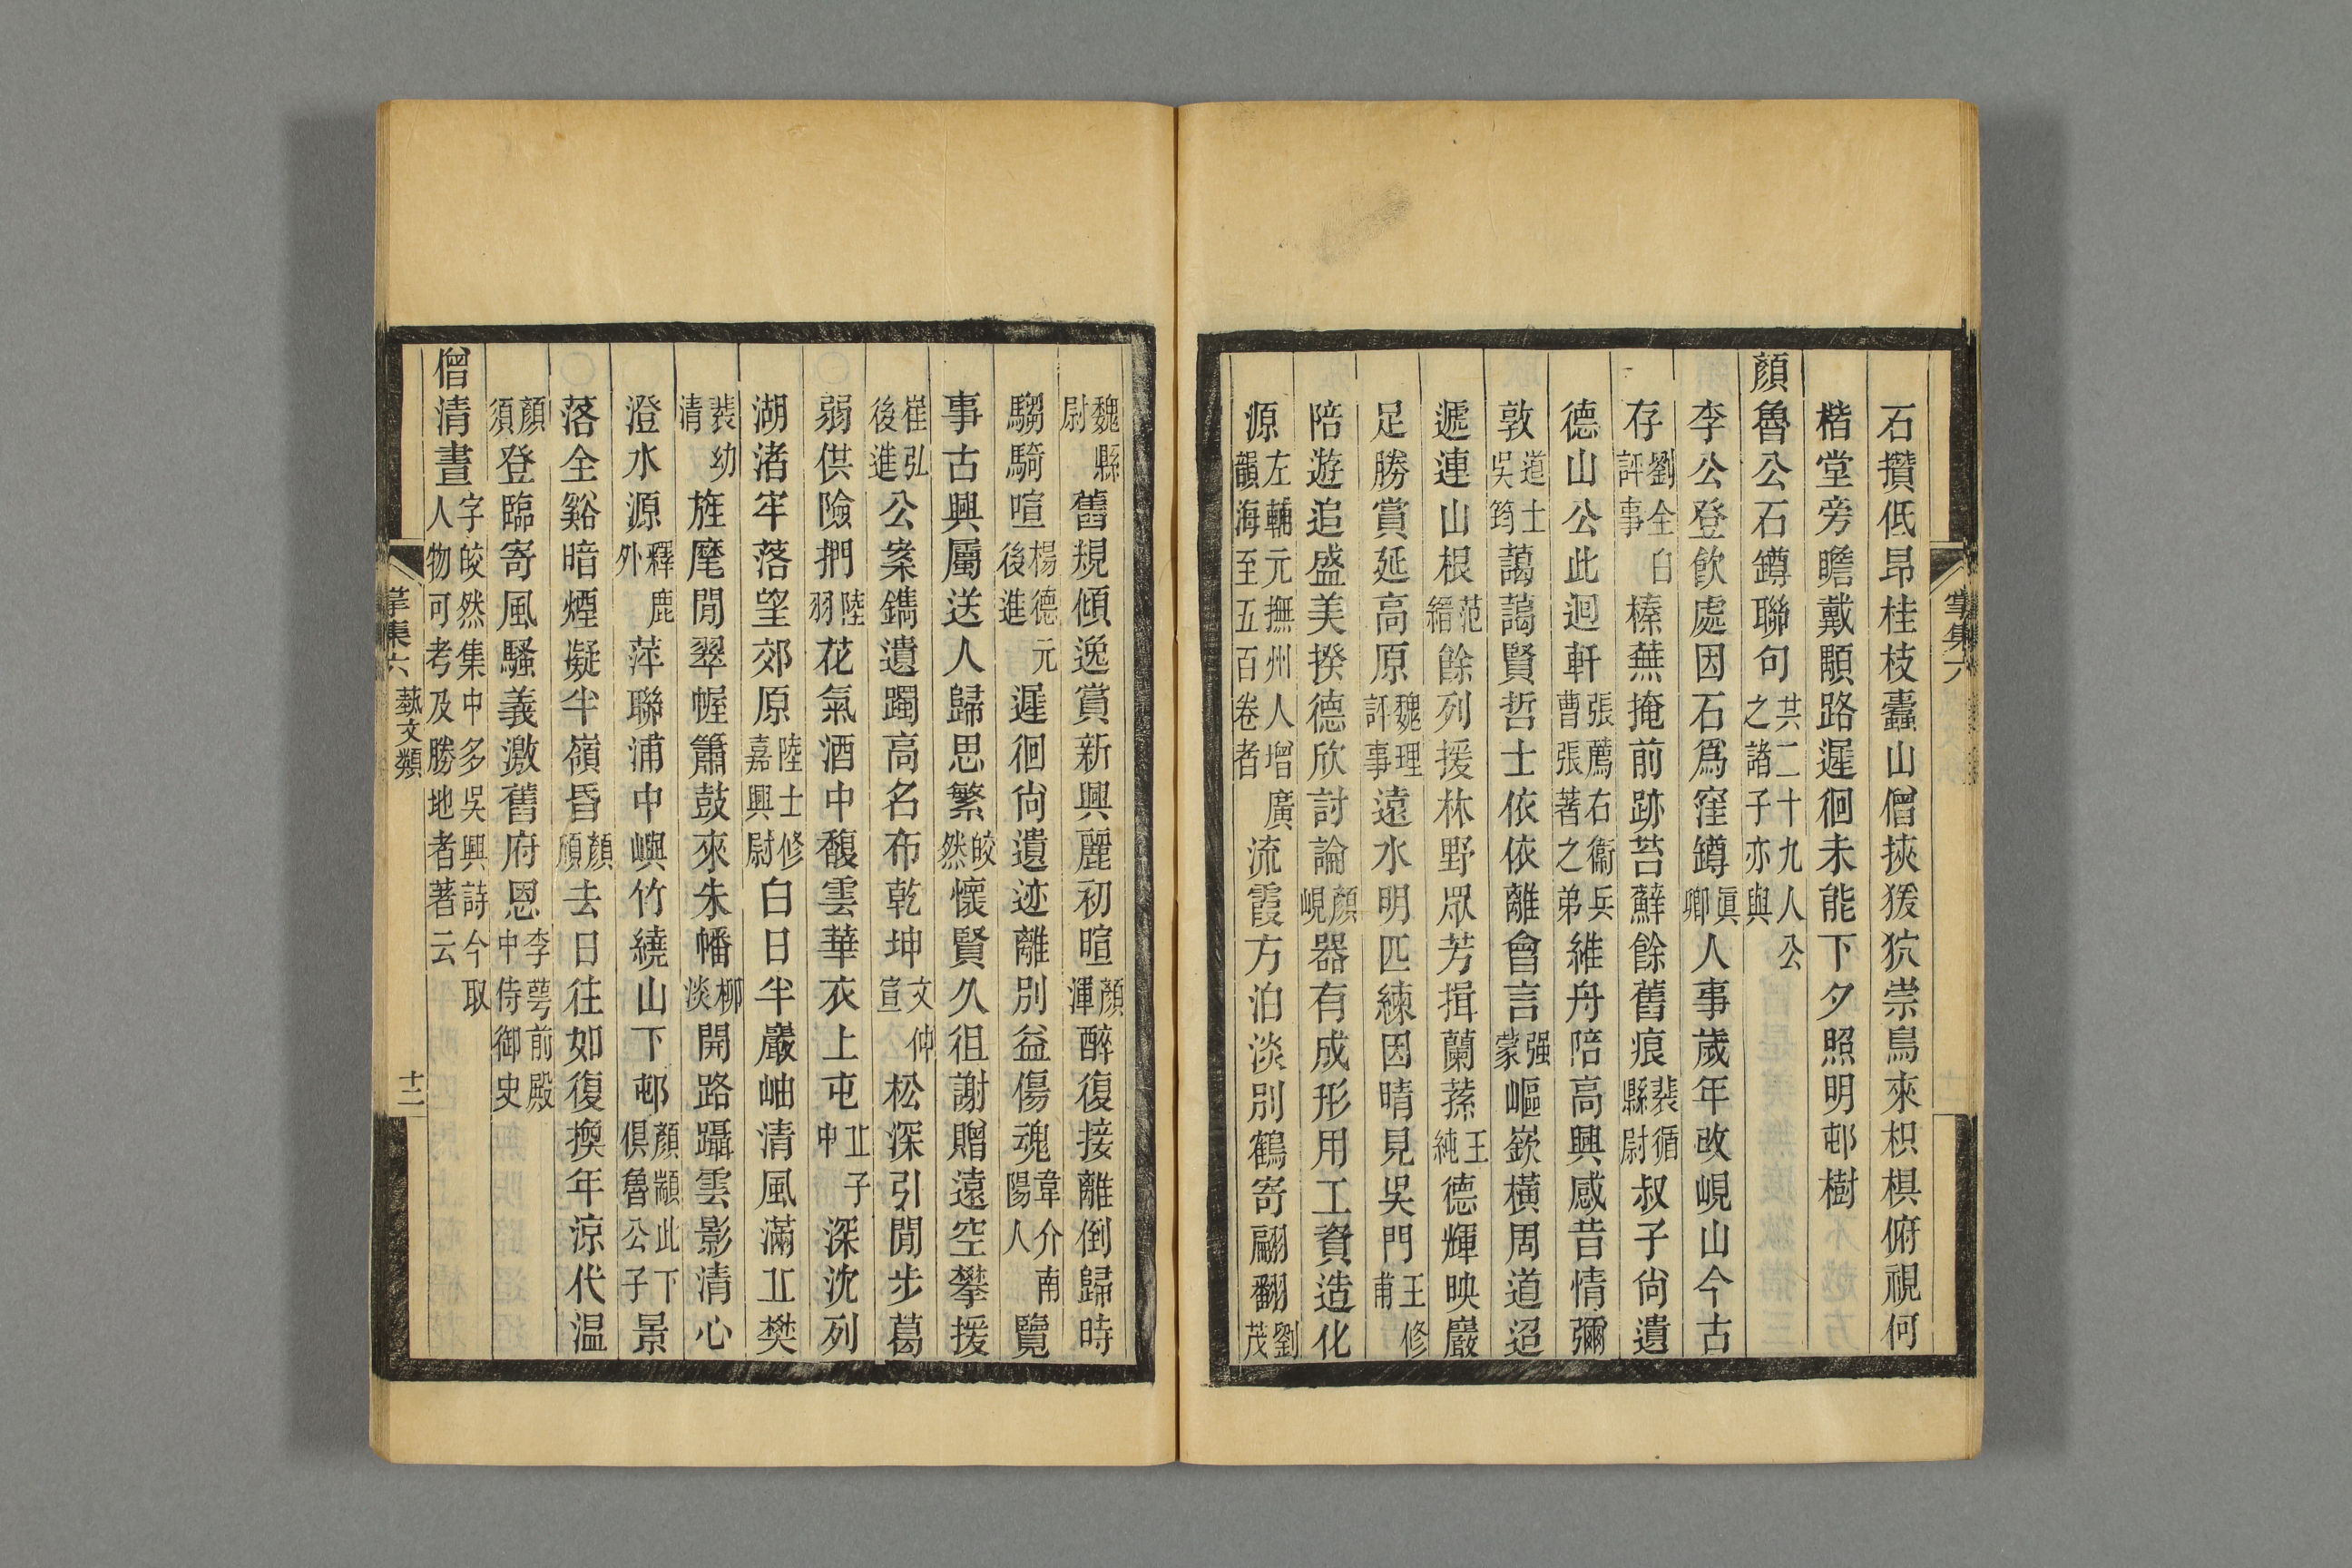 石攢低昂桂枝蠹山僧挾猨狖崇鳥來枳椇俯視何
楷堂旁瞻戴顒路遲徊未能下夕照明邨樹
顏魯公石罇聯句共二十九人公之諸子亦與
李公登飲處因石爲窪罇眞卿人事歲年改峴山今古
存劉全白評事榛蕪掩前跡苔蘚餘舊痕裴循縣尉叔子尙遺
德山公此迴軒張薦右衞兵曹張著之弟維舟陪高興感昔情彌
敦道士吳筠藹藹賢哲士依依離會言强蒙嶇嶔橫周道迢
遞連山根范縉餘列援林野眾芳揖蘭蓀王純德輝映巖
足勝賞延高原魏理評事遠水明匹練因晴見吳門王修甫
陪遊追盛美揆德欣討論顏峴器有成形用工資造化
源左輔元撫州人增廣韻海至五百卷者流霞方泊淡別鶴寄翩翻劉茂
魏縣尉舊規傾逸賞新興麗初暄顏渾醉復接離倒歸時
騶騎喧楊德元後進遲徊尙遺迹離別益傷魂韋介南陽人覽
事古興屬送人歸思繁皎然懷賢久徂謝贈遠空攀援
崔弘後進公案鐫遺躅高名布乾坤文仲宣松深引閒步葛
弱供險捫陸羽花氣酒中馥雲華衣上屯㐀子中深沈列
湖渚牢落望郊原陸士修嘉興尉白日半巖岫清風滿㐀樊
裴幼清旌麾閒翠幄簫鼓來朱幡柳淡開路躡雲影清心
澄水源釋鹿外萍聯浦中嶼竹繞山下邨顏顓此下俱魯公子景
落全谿暗煙凝半嶺昏顏頎去日往如復換年涼代温
顏須登臨寄風騷義激舊府恩李萼前殿中侍御史
僧清晝字皎然集中多吳興詩今取人物可考及勝地者著云
掌集六 藝文類 十二